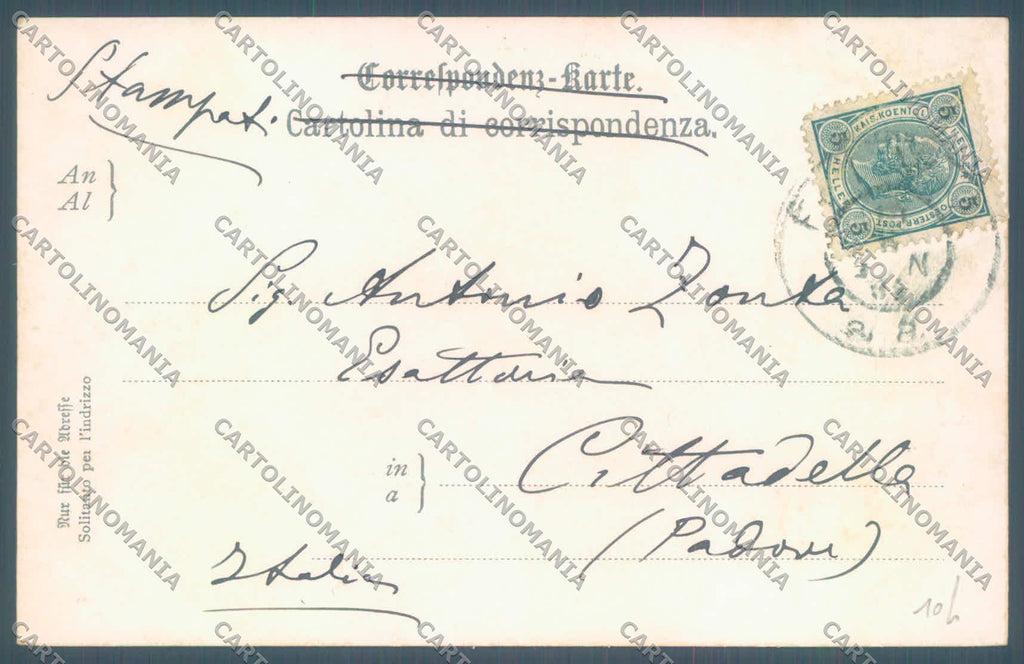 Stampat.
Correspondenz-Karte.
Cartolina di corrispondenza.
An
Al
5 5 5 5
KAIS. KOENIGL. OESTERR. POST
HELLER HELLER
Sig. Antonio Zonta
Esattoria
in
a
Cittadella
(Padova)
Italia
Nur für die Adresse
Solitanto per l'indrizzo
10
CARTOLINOMANIA